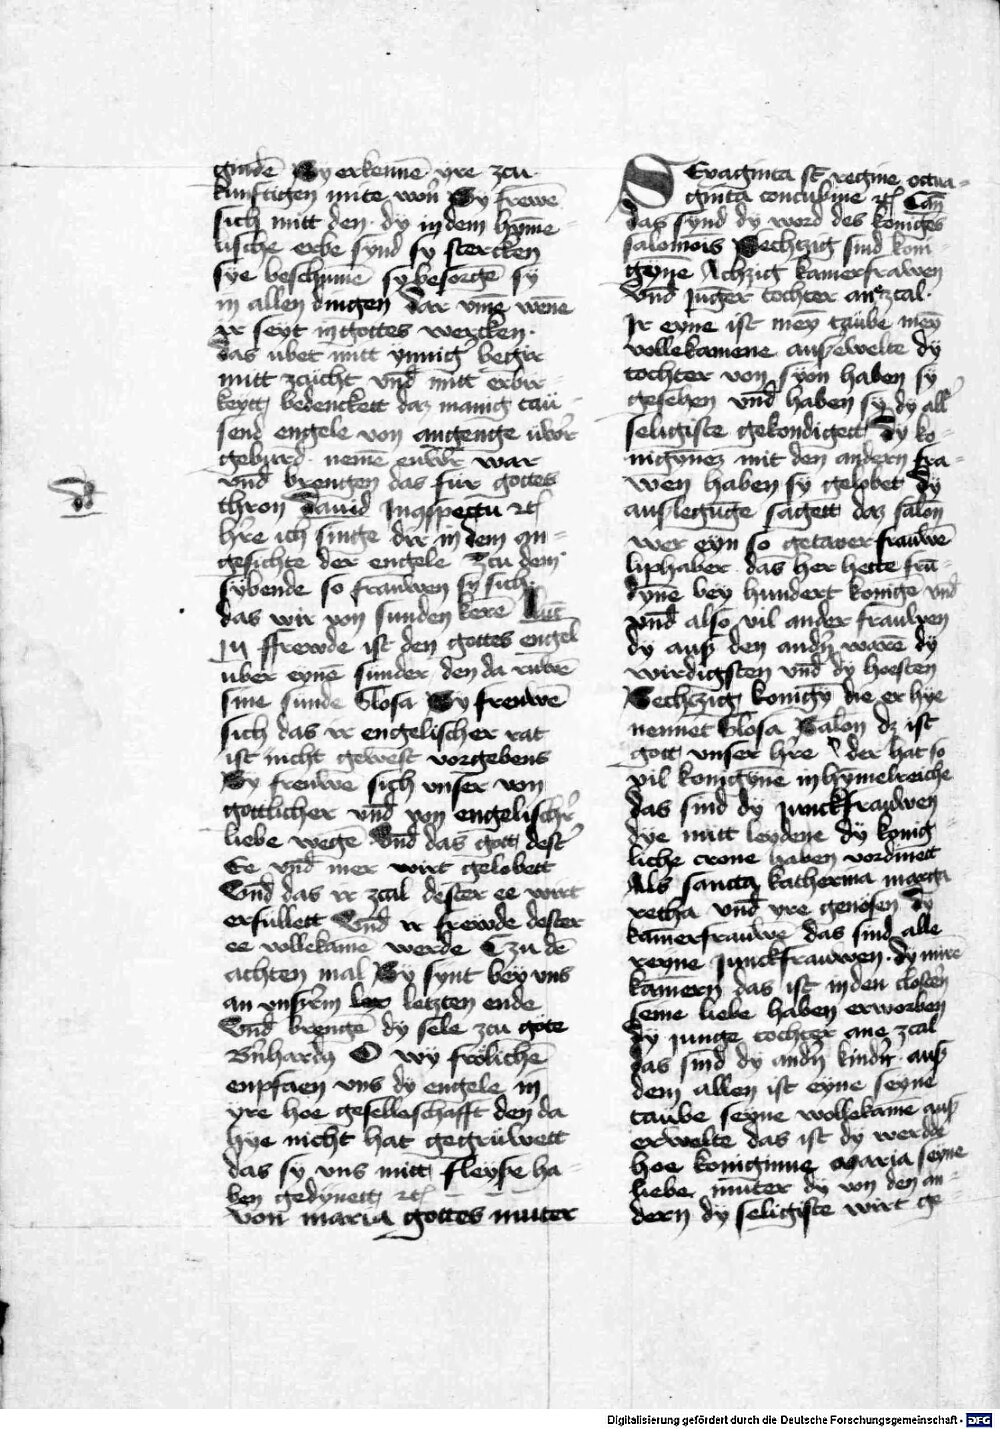 gnadē Sy erkennē yre zcu
kunftigen mite won̄ Sy frewē
sich mitt den · dy in dem hyme¯
lische erbe synd sy stercken
sye beschīmē sy besorge sy
in allen dingen dar vme wene
ir seyt in gottes wercken ·
das vbet mitt ynnig̕ begir
mitt zcücht vnd̄ mitt erbir¯
keytt bedenckett daz manig taü¯
send engele von angenge üwr̕
geburd · nemē euwr̄ war
vnd brengen das für gottes
thron Dauid In 9spectu etc̄
hr̕re ich singe dir in dem an¯
gesichte der engele Zcu dem
sybende so frauwen sy sich
das wir von sunden kerē Luc̄
In ffrewde ist den gottes engel̄
uber eynē sunder den da ruwē
sine sunde Glosa Sy freuwē
sich das ir engelischer rat
ist nicht gewest vorgebens
Sy freuwē sich vnser von
gottlicher vnd̄ von engelischr̕
liebe wegē Vnd̄ das gott dest̕
Ee vnd̄ mer wirt gelobett
Vnd̄ das ir zcal dester ee wirt
erfüllett Vnd̄ ir frewde dester
ee vollekame werde Czu dē
achten mal Sy synt bey vns
an vnserm letzten ende
Vnd̄ brengē dy sele zcu gote
Bn̕hardꝰ O wy frolichē
enpfaen vns dy engele in
yre hoe geselleschafft den da
hye nicht hat gegrüwett
das sy vns mitt fleyße ha¯
ben gedynett etc̄
von maria gottes muter
SExaginta st̄ regine octua¯
ginta concubine etc̄ Can̄
das synd dy word des koniges
salomōis Sechtzig sind kon¯
gynne Achzig kamerfrawen
vnd̄ Juger tochter ane zcal ·
Ir eyne ist mey taube mey
vollekamene außewelte dy
tochter von syon haben sy
gesehen vnd̄ haben sy dy all̕
seligiste gekondigett Dy ko¯
nigynez mit den andern fra¯
wen haben sy gelobet dy
außlegūge sagett daz salon̄
wer eyn so getaner frauwē
liphaber das her hette frū¯
dynē bey hundert konigē vnd̄
vnd̄ also vil ander frauwen
dy auß den andn̕ warē dy
wirdigsten vnd̄ dy hoesten
Sechtzig konigȳ die er hye
nennet Glosa Salon̄ dz ist
gott vnser hr̕re der hat so
vil konigyne in hymelreiche
das sind dy Junckfrauwen
dye mitt leydene dy konig¯
liche crone haben vordinett
Als sancta katherina marga
retha vnd̄ yre genosen Dy
kamerfrauwē das sind alle
reyne Junckfrauwen · dy in irē
kamern̄ das ist in den clostern̄
seine liebe haben erworben
Dy Junge tochter ane zcal
das sind dy andn̕ kindr̕ · auß
dem allen ist eyne seyne
taube seyne wollekamē auß
erwelte das ist dy werde
hoe koniginne Maria seyne
liebe muter dy von den an¯
dern̄ dy seligiste wirt ge¯